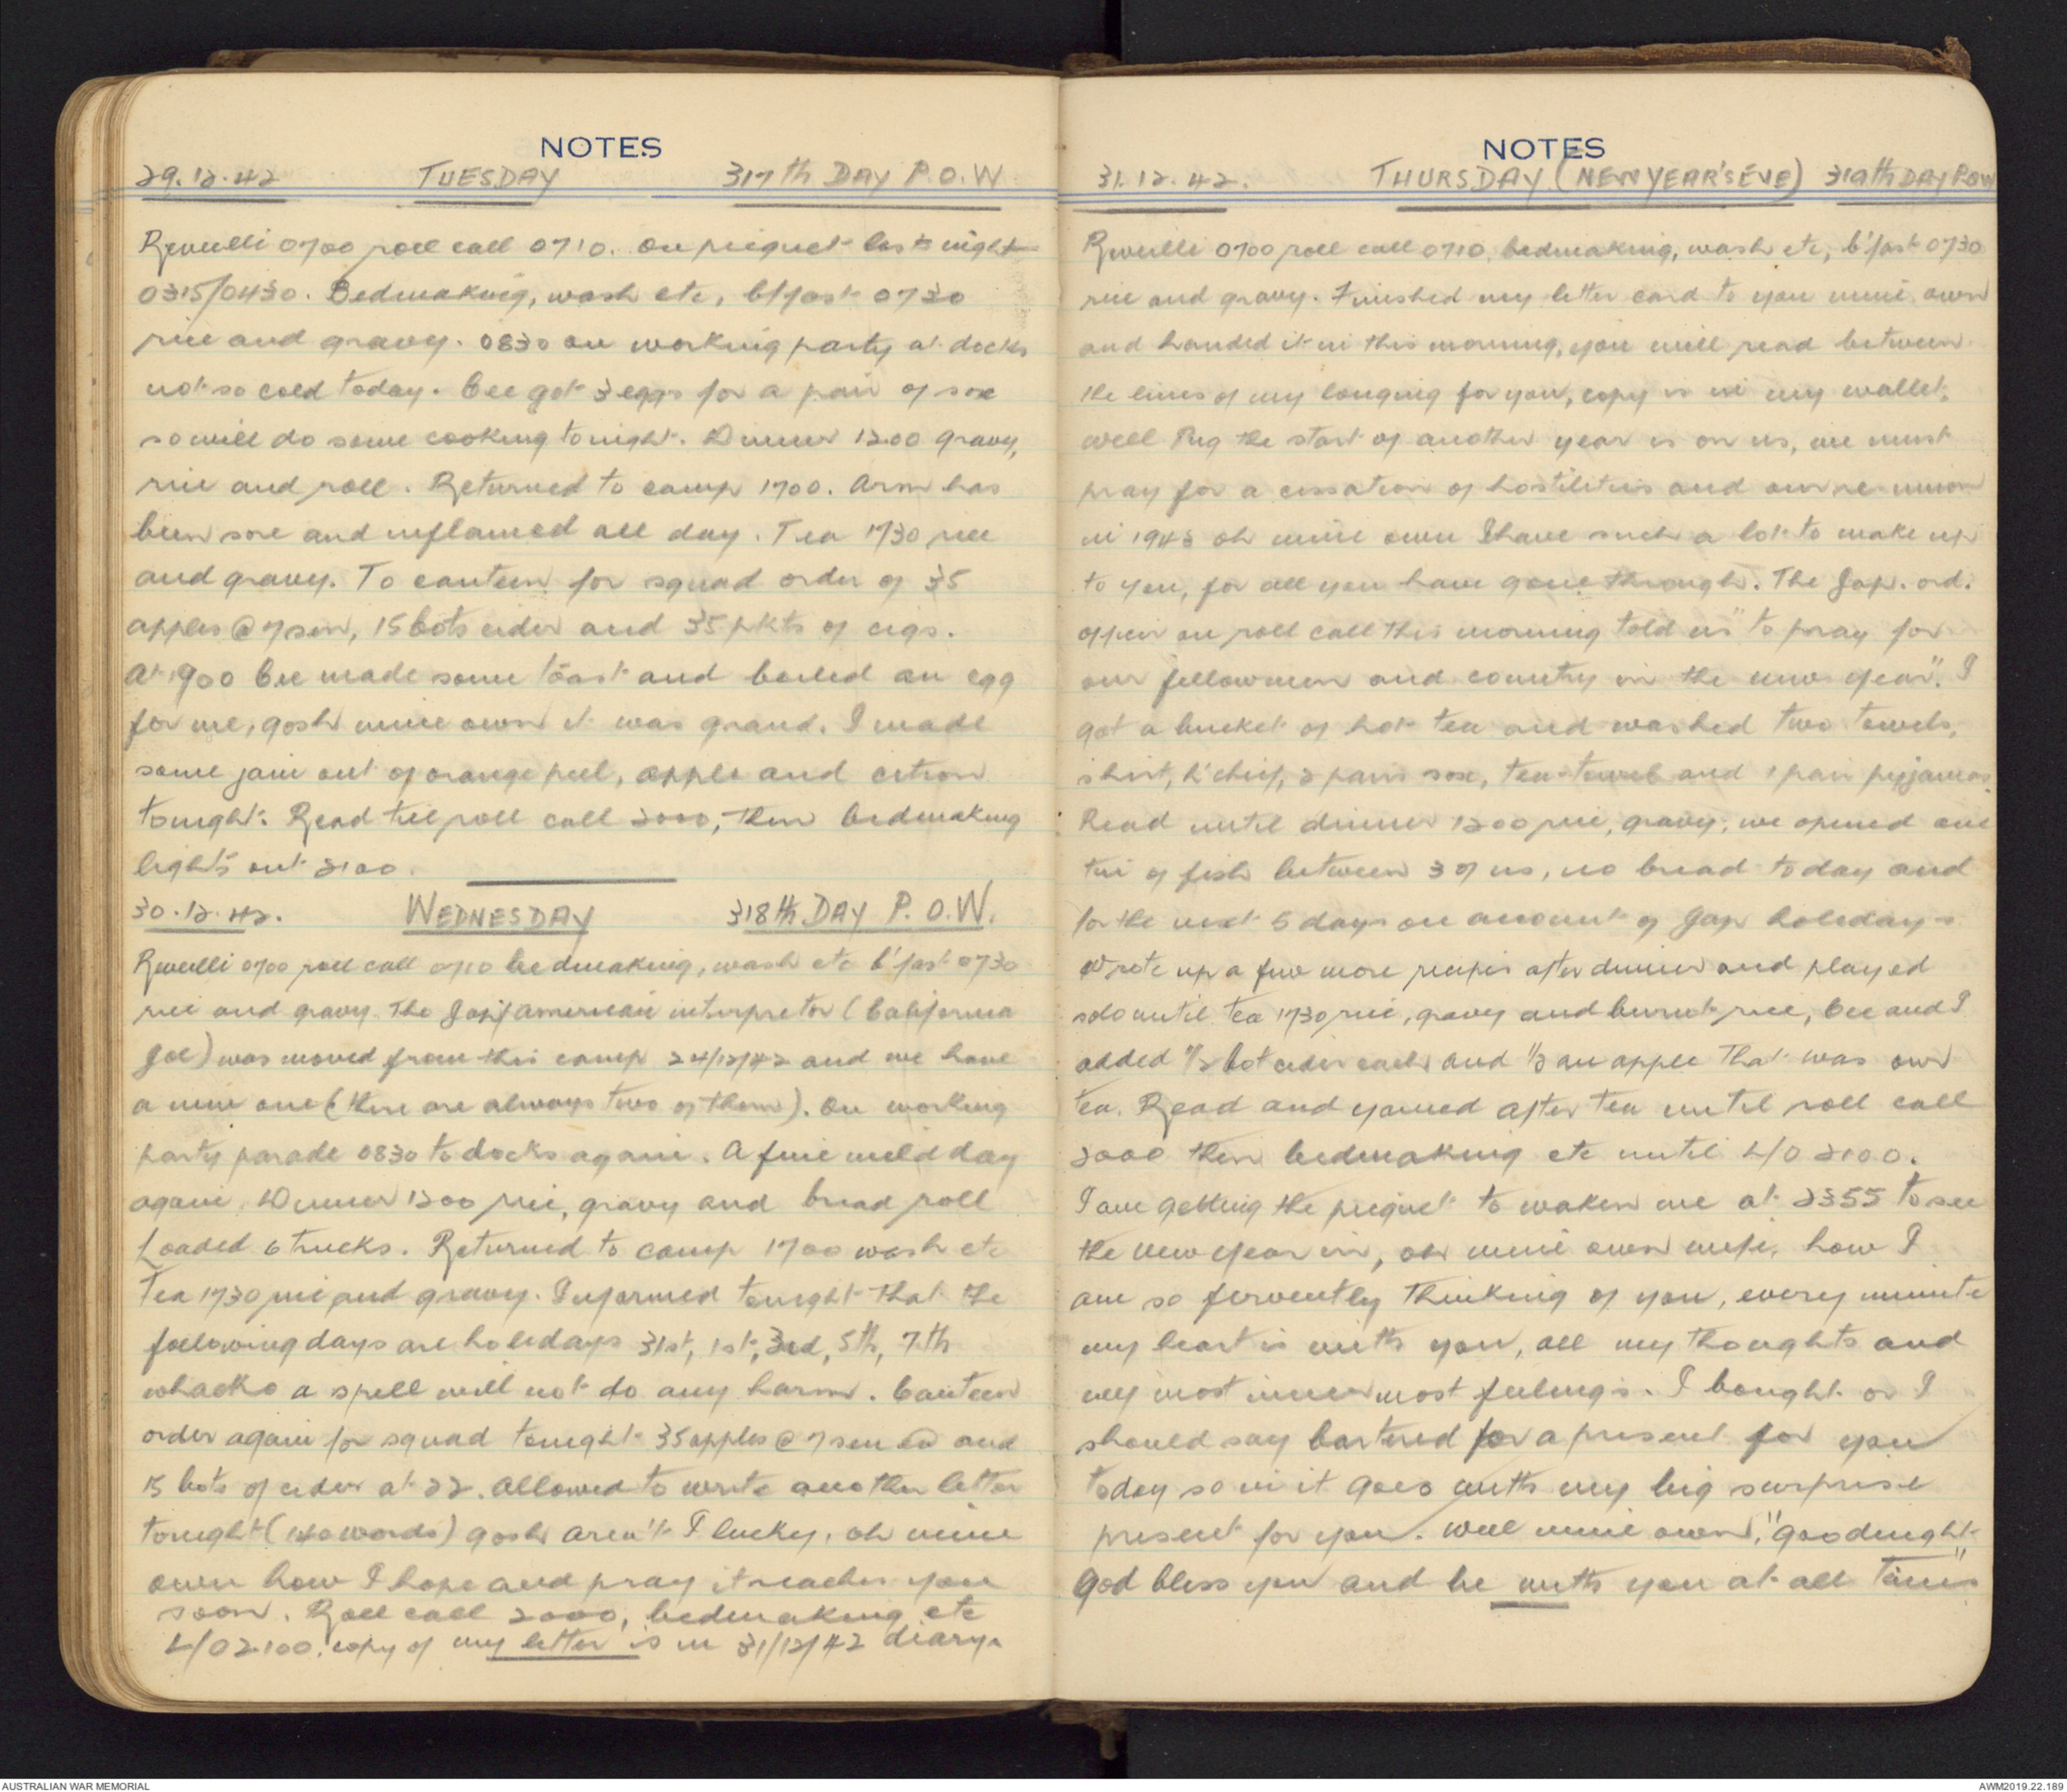 NOTES
29.12.42 TUESDAY 317th DAY P.O.W
Reveilli 0700 roll call 0710. On piequet last night
0315/0430. Bedmaking, wash etc, b/fast 0730
rice and gravy. 0830 on working party at docks
not so cold today. Cec got 3 eggs for a pair of sox
so will do some cooking tonight. Dinner 1200 gravy,
rice and roll. Returned to camp 1700. Arm has
been sore and inflamed all day. Tea 1730 rice
and gravy. To canteen for squad order of 35
apples @ 7 sen, 15 bots cider and 35 pkts of cigs.
At 1900 Cec made some toast and boiled an egg
for me, gosh mine own it was grand. I made
some jam out of orange peel, apple and citron
tonight. Read till roll call 2000, then bedmaking
lights out 2100.
30.12.42. WEDNESDAY 318th DAY P.O.W.
Reveilli 0700 roll call 0710 bedmaking, wash etc b'fast 0730
rice and gravy. The Jap/american interpretor (California
Joe) was moved from this camp 24/12/42 and we have
a new one (there are always two of them). On working
party parade 0830 to docks again. A fine mild day
again. Dinner 1200 rice, gravy and bread roll
Loaded 6 trucks. Returned to camp 1700 wash etc
Tea 1730 rice and gravy. Informed tonight that the
following days are holidays 31st, 1st, 3rd, 5th, 7th
whacko a spell will not do any harm. Canteen
order again for squad tonight 35 apples @ 7 sen ea and
15 bots of cider at 22. Allowed to write another letter
tonight (140 words) gosh aren't I lucky, oh mine
own how I hope and pray it reaches you
soon. Roll call 2000, bedmaking etc
L/O 2100. copy of my letter is in 31/12/42 diary.
NOTES
31.12.42. THURSDAY (NEW YEAR'S EVE) 319th DAY P.O.W
Reveilli 0700 roll call 0710, bedmaking, wash etc, b'fast 0730
rice and gravy. Finished my letter card to you mine own
and handed it in this morning, you will read between
the lines of my longing for you, copy is in my wallet.
Well Pug the start of another year is on us, we must
pray for a cessation of hostilities and our re-union
in 1943 oh mine own I have such a lot to make up
to you, for all you have gone through. The Jap. ord.
officer on roll call this morning told us "to pray for
our fellowmen and country in the new year". I
got a bucket of hot tea and washed two towels,
shirt, h'chief, 2 pairs sox, tea-towel and 1 pair pyjamas.
Read until dinner 1200 rice, gravy, we opened one
tin of fish between 3 of us, no bread today and
for the next 5 days on account of Jap holidays
Wrote up a few more recipes after dinner and played
solo until tea 1730 rice, gravy and burnt rice, Cec and I
added 1/2 bot cider each and 1/2 an apple That was our
tea. Read and yarned after tea until roll call
2000 then bedmaking etc until L/O 2100.
I am getting the piequet to waken me at 2355 to see
the new year in, oh mine own wife, how I
am so fervently thinking of you, every minute
my heart is with you, all my thoughts and
my most innermost feelings. I bought or I
should say bartered for a present for you
today so in it goes with my big surprise
present for you. Well mine own, "goodnight
God bless you and be with you at all times"
AUSTRALIAN WAR MEMORIAL
AWM2019.22.189